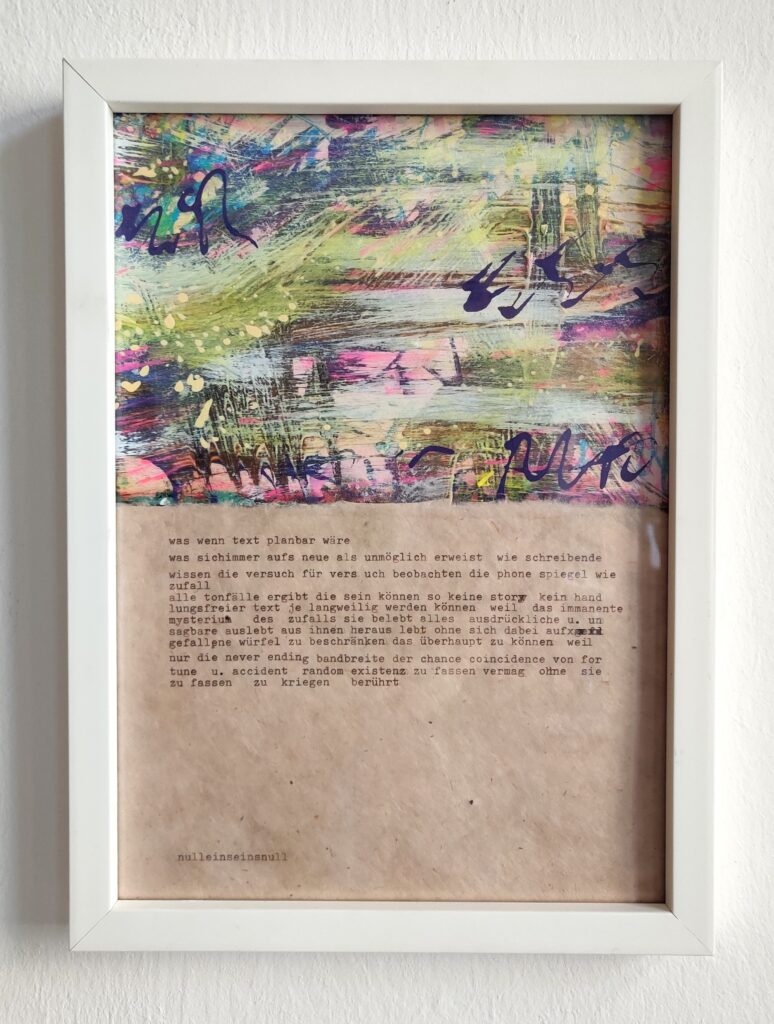 was wenn text planbar wäre
was sichimmer aufs neue als unmöglich erweist wie schreibende
wissen die versuch für vers uch beobachten die phone spiegel wie
zufall
alle tonfälle ergibt die sein können so keine story kein hand
lungsfreier text je langweilig werden können weil das immanente
mysterium des zufalls sie belebt alles ausdrückliche u. un
sagbare auslebt aus ihnen heraus lebt ohne sich dabei auf
gefallene würfel zu beschränken das überhaupt zu können weil
nur die never ending bandbreite der chance coincidence von for
tune u. accident random existenz zu fassen vermag ohne sie
zu fassen zu kriegen berührt
nulleinseinsnull